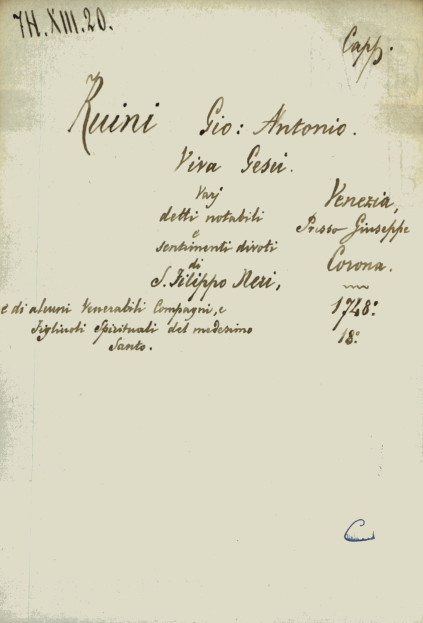 7H.XIII.20.
Capp.
Ruini Gio: Antonio.
Viva Gesù.
Varj
detti notabili
e
sentimenti divoti
di
S. Filippo Neri,
e di alcuni Venerabili Compagni, e
Figliuoli Spirituali del medesimo
Santo.
Venezia,
Presso Giuseppe
Corona.
1748.
18°
C